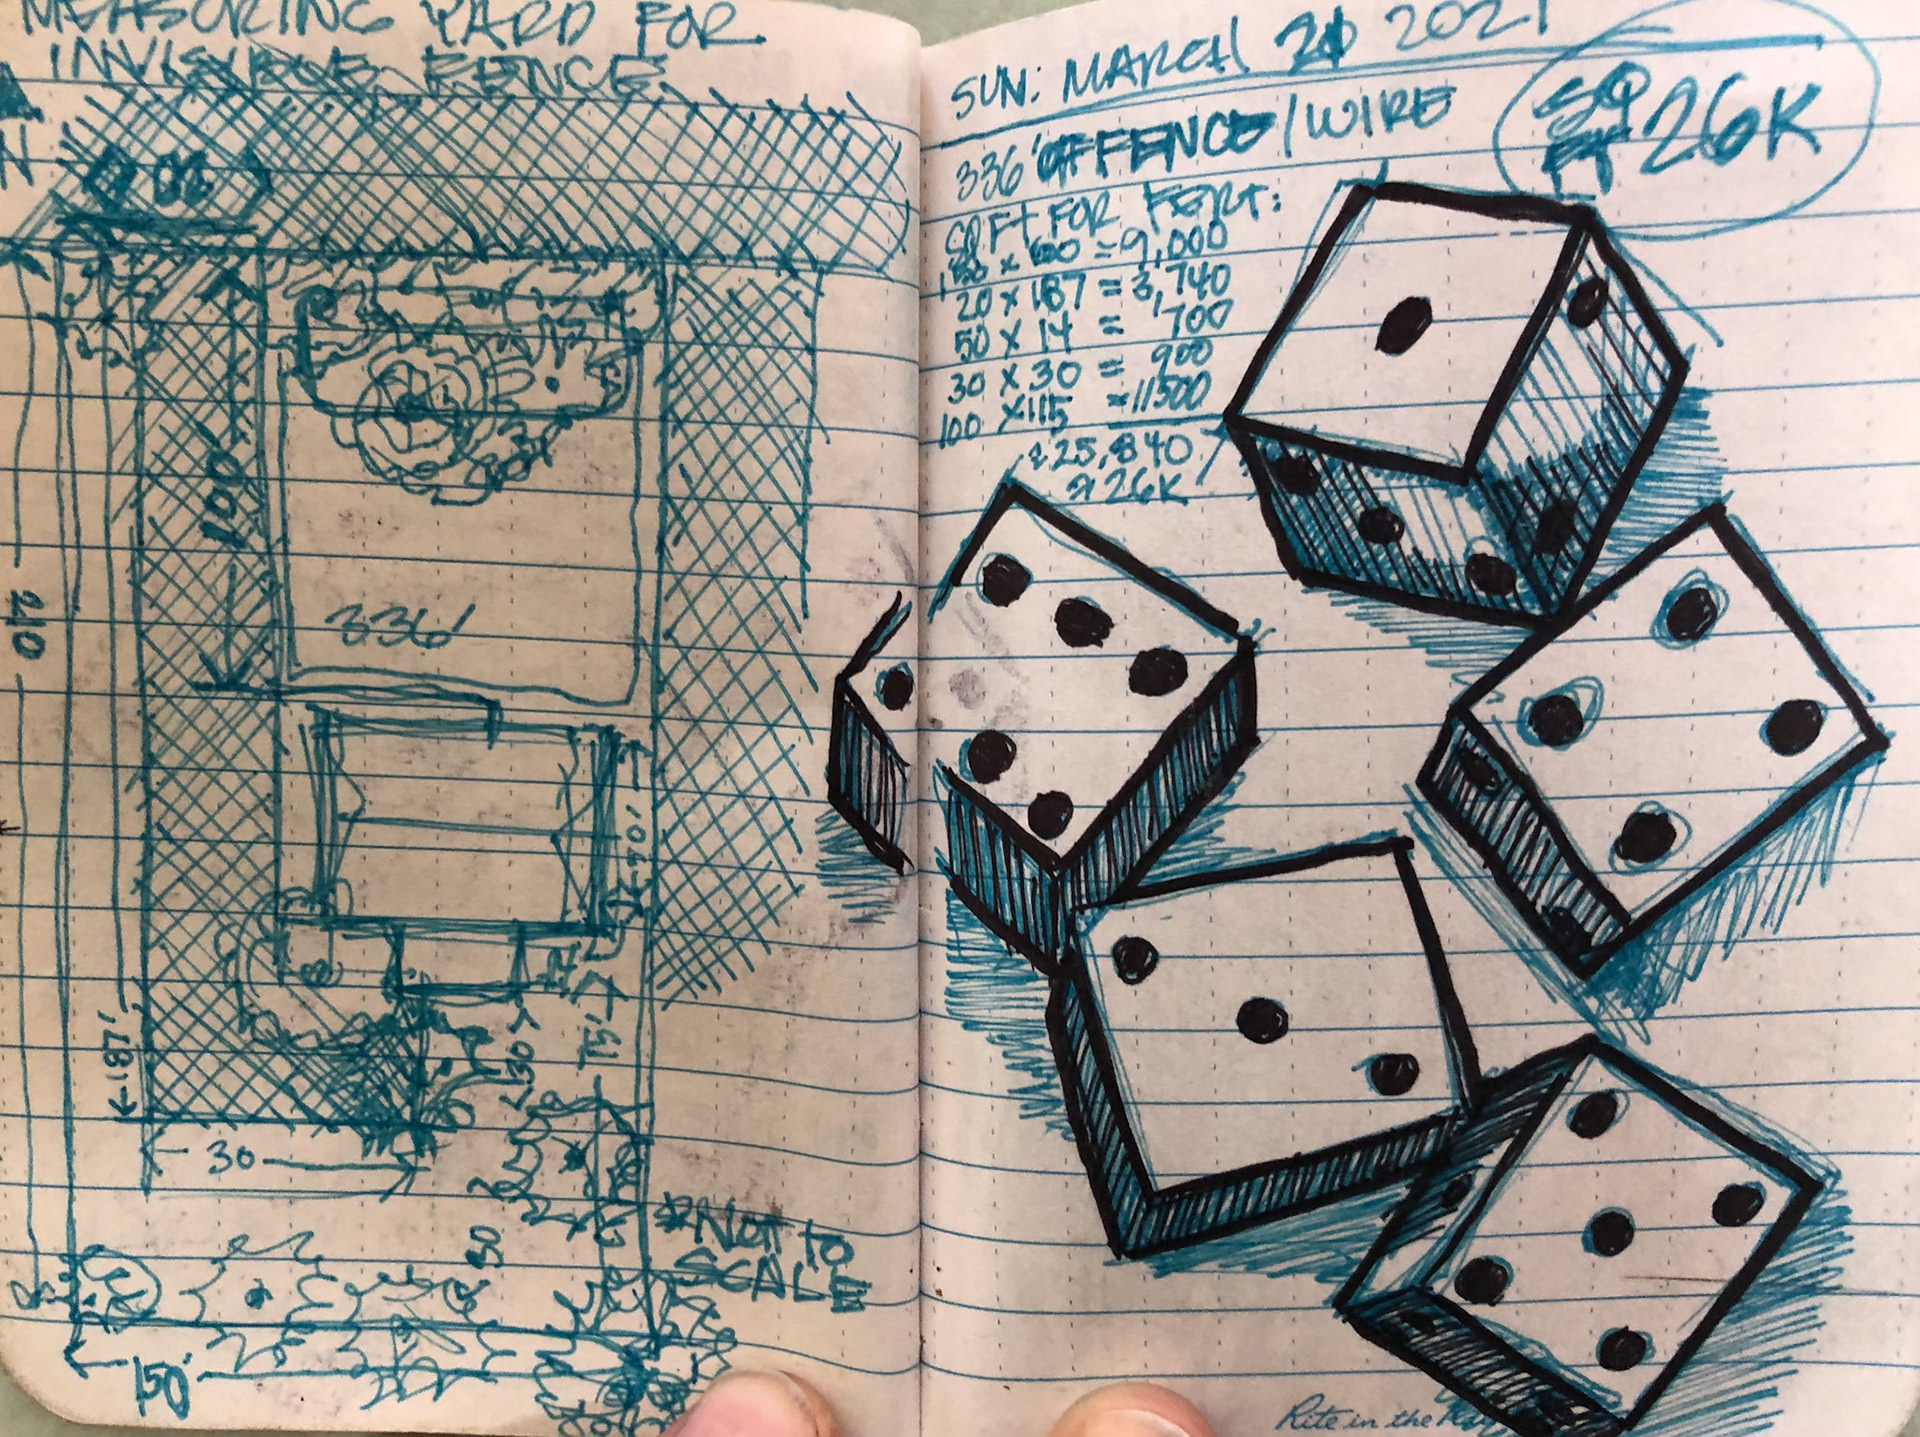 MEASURING YARD FOR
INVISIBLE FENCE
N
100'
210
336'
40'
187'
30
15'
30
50
*NOT TO
SCALE
150'
SUN: MARCH 2021
SQ
FT 26K
336' OF FENCE/WIRE
SQ FT FOR FERT:
150 x 60 = 9,000
20 x 187 = 3,740
50 x 14 = 700
30 x 30 = 900
100 x 115 = 11500
25,840
26K
Rite in the Rain